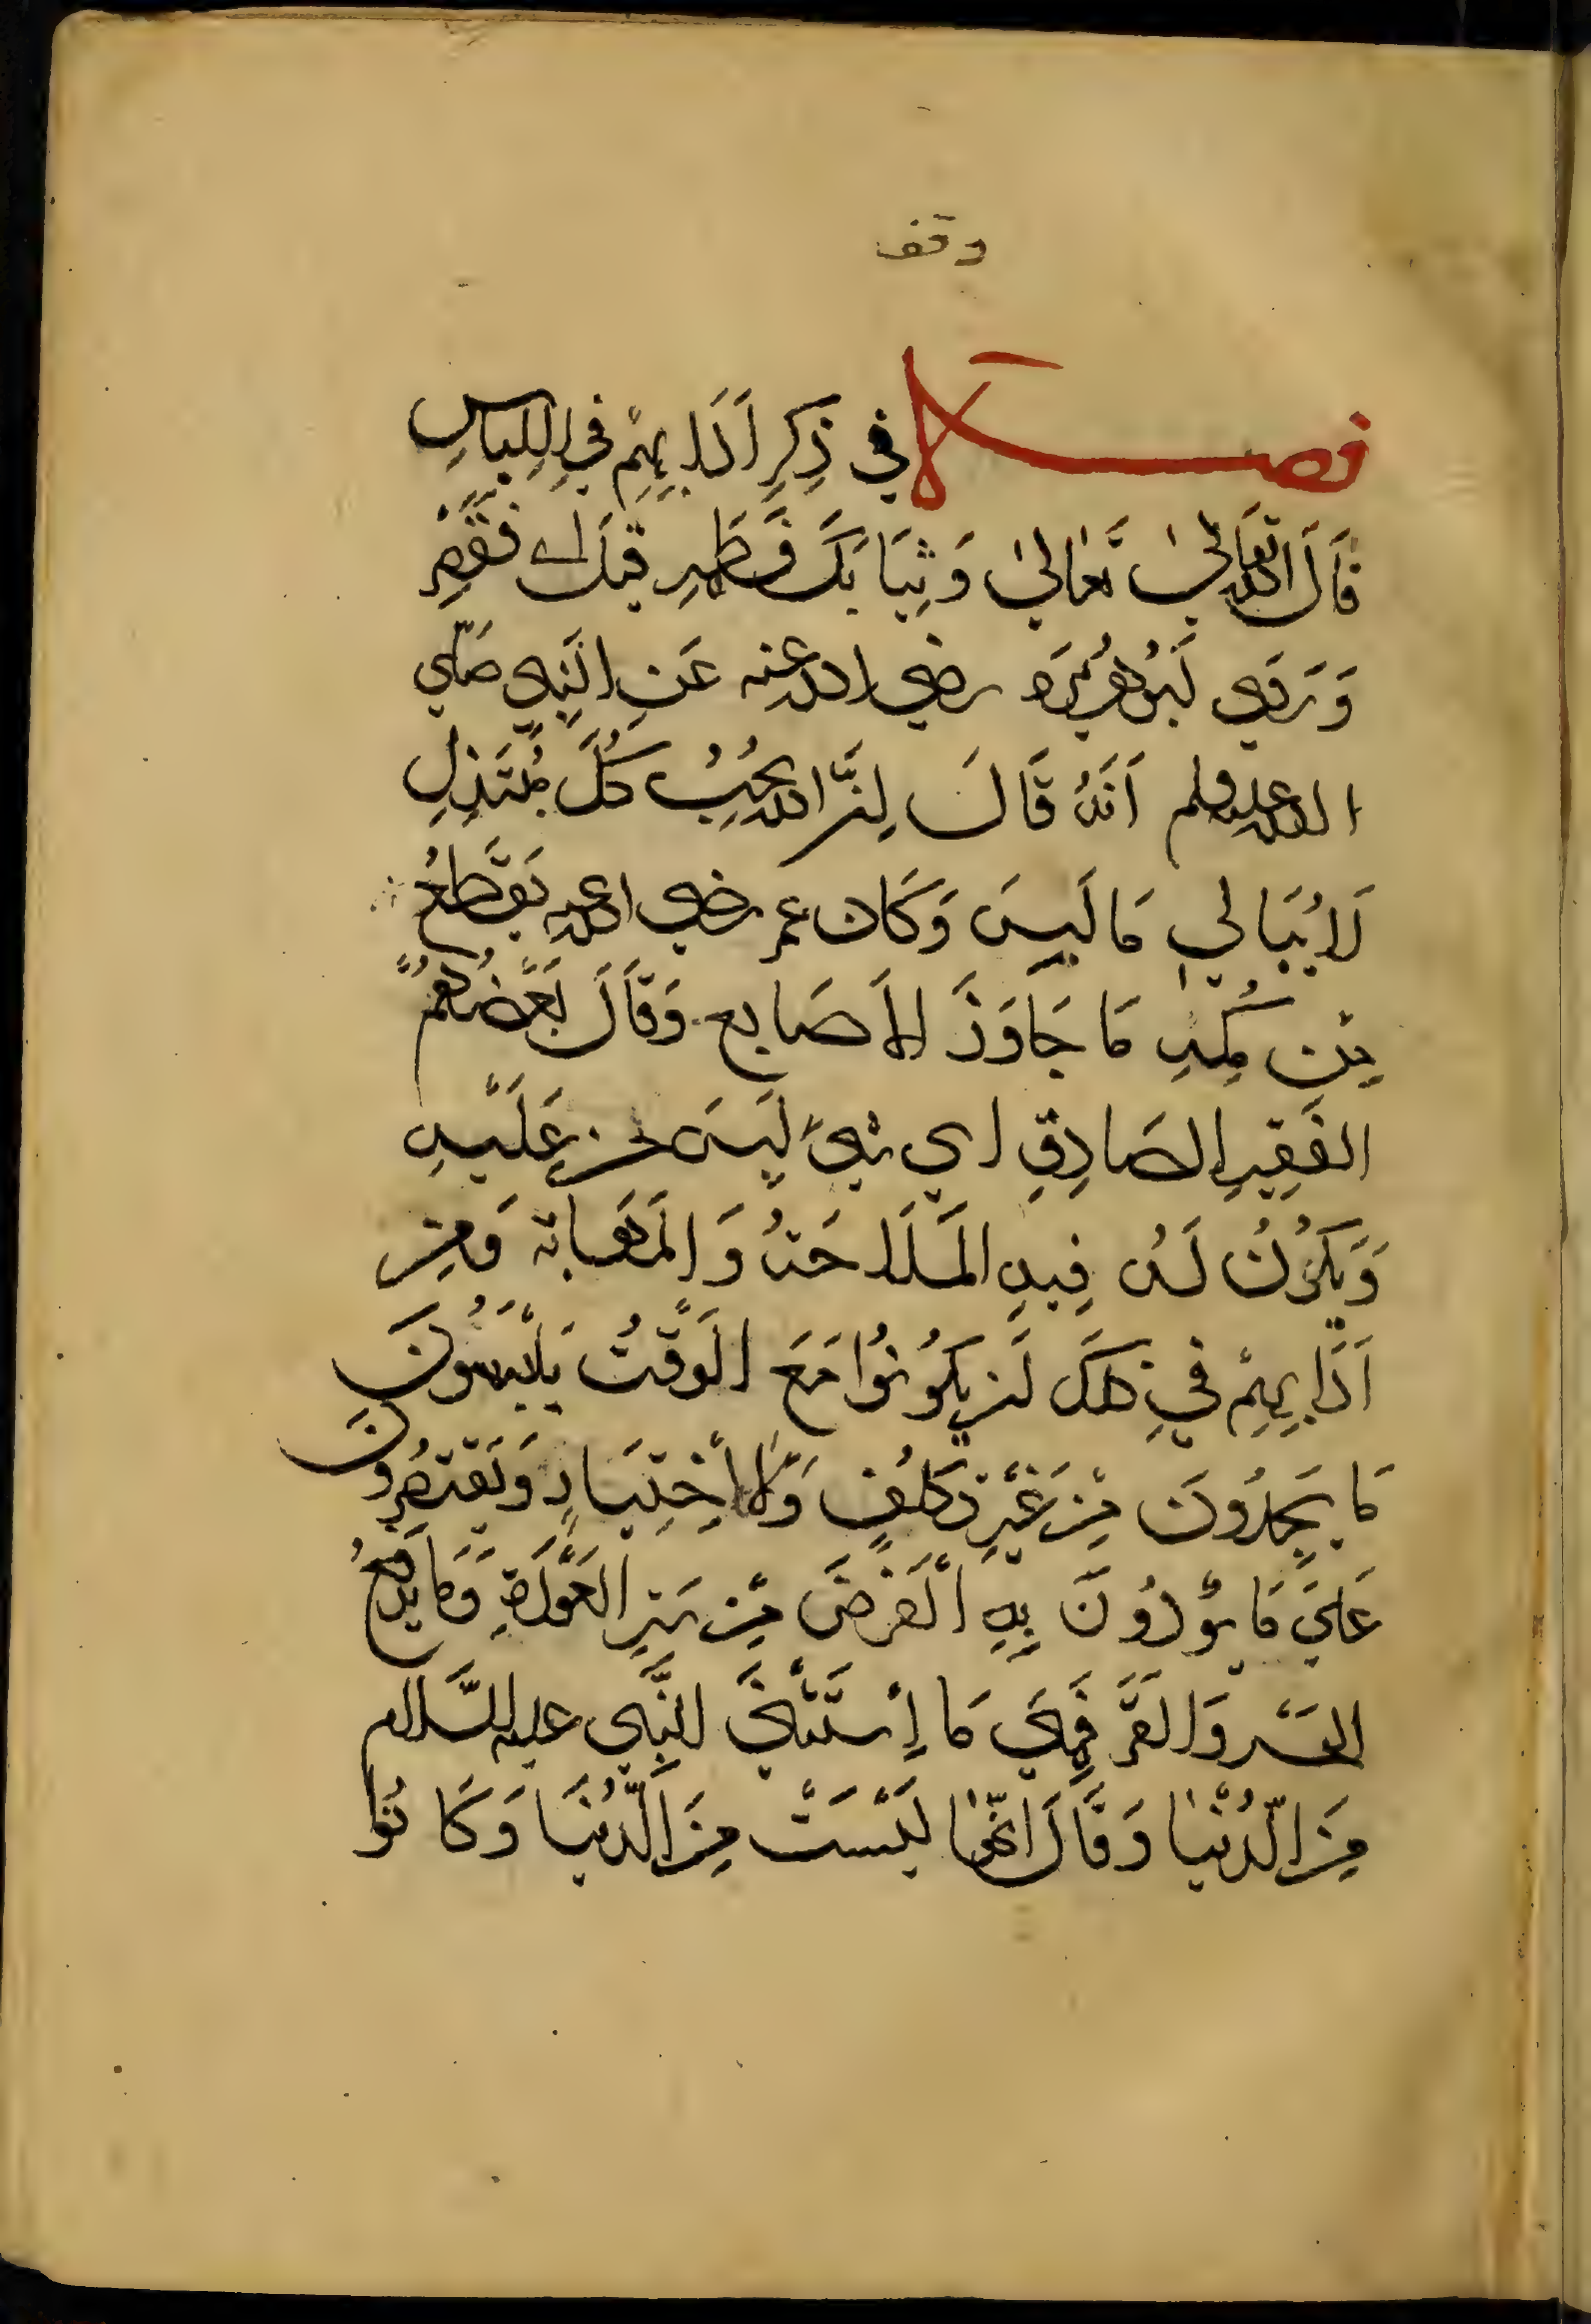 وقف
فصل في ذِكرِ آدَابِهِم في اللِّبَاسِ
قَالَ الله تعالى تَعَالى وَثِيَابَكَ فَطَهِّر قيلَ فَقَصِّر
وَرَوى أبو هُرَيرَه رضي الله عنه عَنِ النَّبِي صَلّى
الله عليه وسلم أَنَّهُ قَالَ إِنَّ الله يُحِبُّ كُلَّ مُتَبَذِّلٍ
لَا يُبَالي مَا لَبِسَ وَكَان عمر رضي الله عنه يَقطَعُ
مِن كُمِّهِ مَا جَاوَزَ الأَصَابِع وَقَالَ بَعضُهُم
الفَقِيرِ الصَادِقِ اي شيءٍ لَبِسَ حَسُنَ عَلَيهِ
وَيَكُونُ لَهُ فِيهِ المَلَاحَةُ وَالمَهَابَة وَمِن
آدَابِهِم في ذلكَ أَن يَكُونُوا مَعَ الوَقْتِ يَلْبَسُونَ
مَا يَجِدُونَ مِن غَيرِ تَكَلُّفٍ وَلَا اخْتِيَارٍ وَيَقتَصِرُونَ
عَلى مَا يُؤدُونَ بِهِ الْفَرْضَ مِن سَترِ العَوْرَةِ وَمَا يَدفَعُ
الحَر وَالقَرَّ فَهيَ مَا إِسْتَثْنى النَّبِي عليه السَّلام
مِنَ الدُّنْيَا وَقَالَ انَّهَا لَيْسَتْ مِنَ الدُّنيَا وَكَانُوا